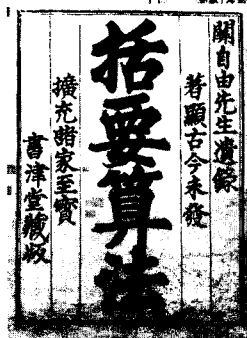 關自由先生遺録
著顯古今未發
括要算法
擴充諸家至寶
書津堂藏版